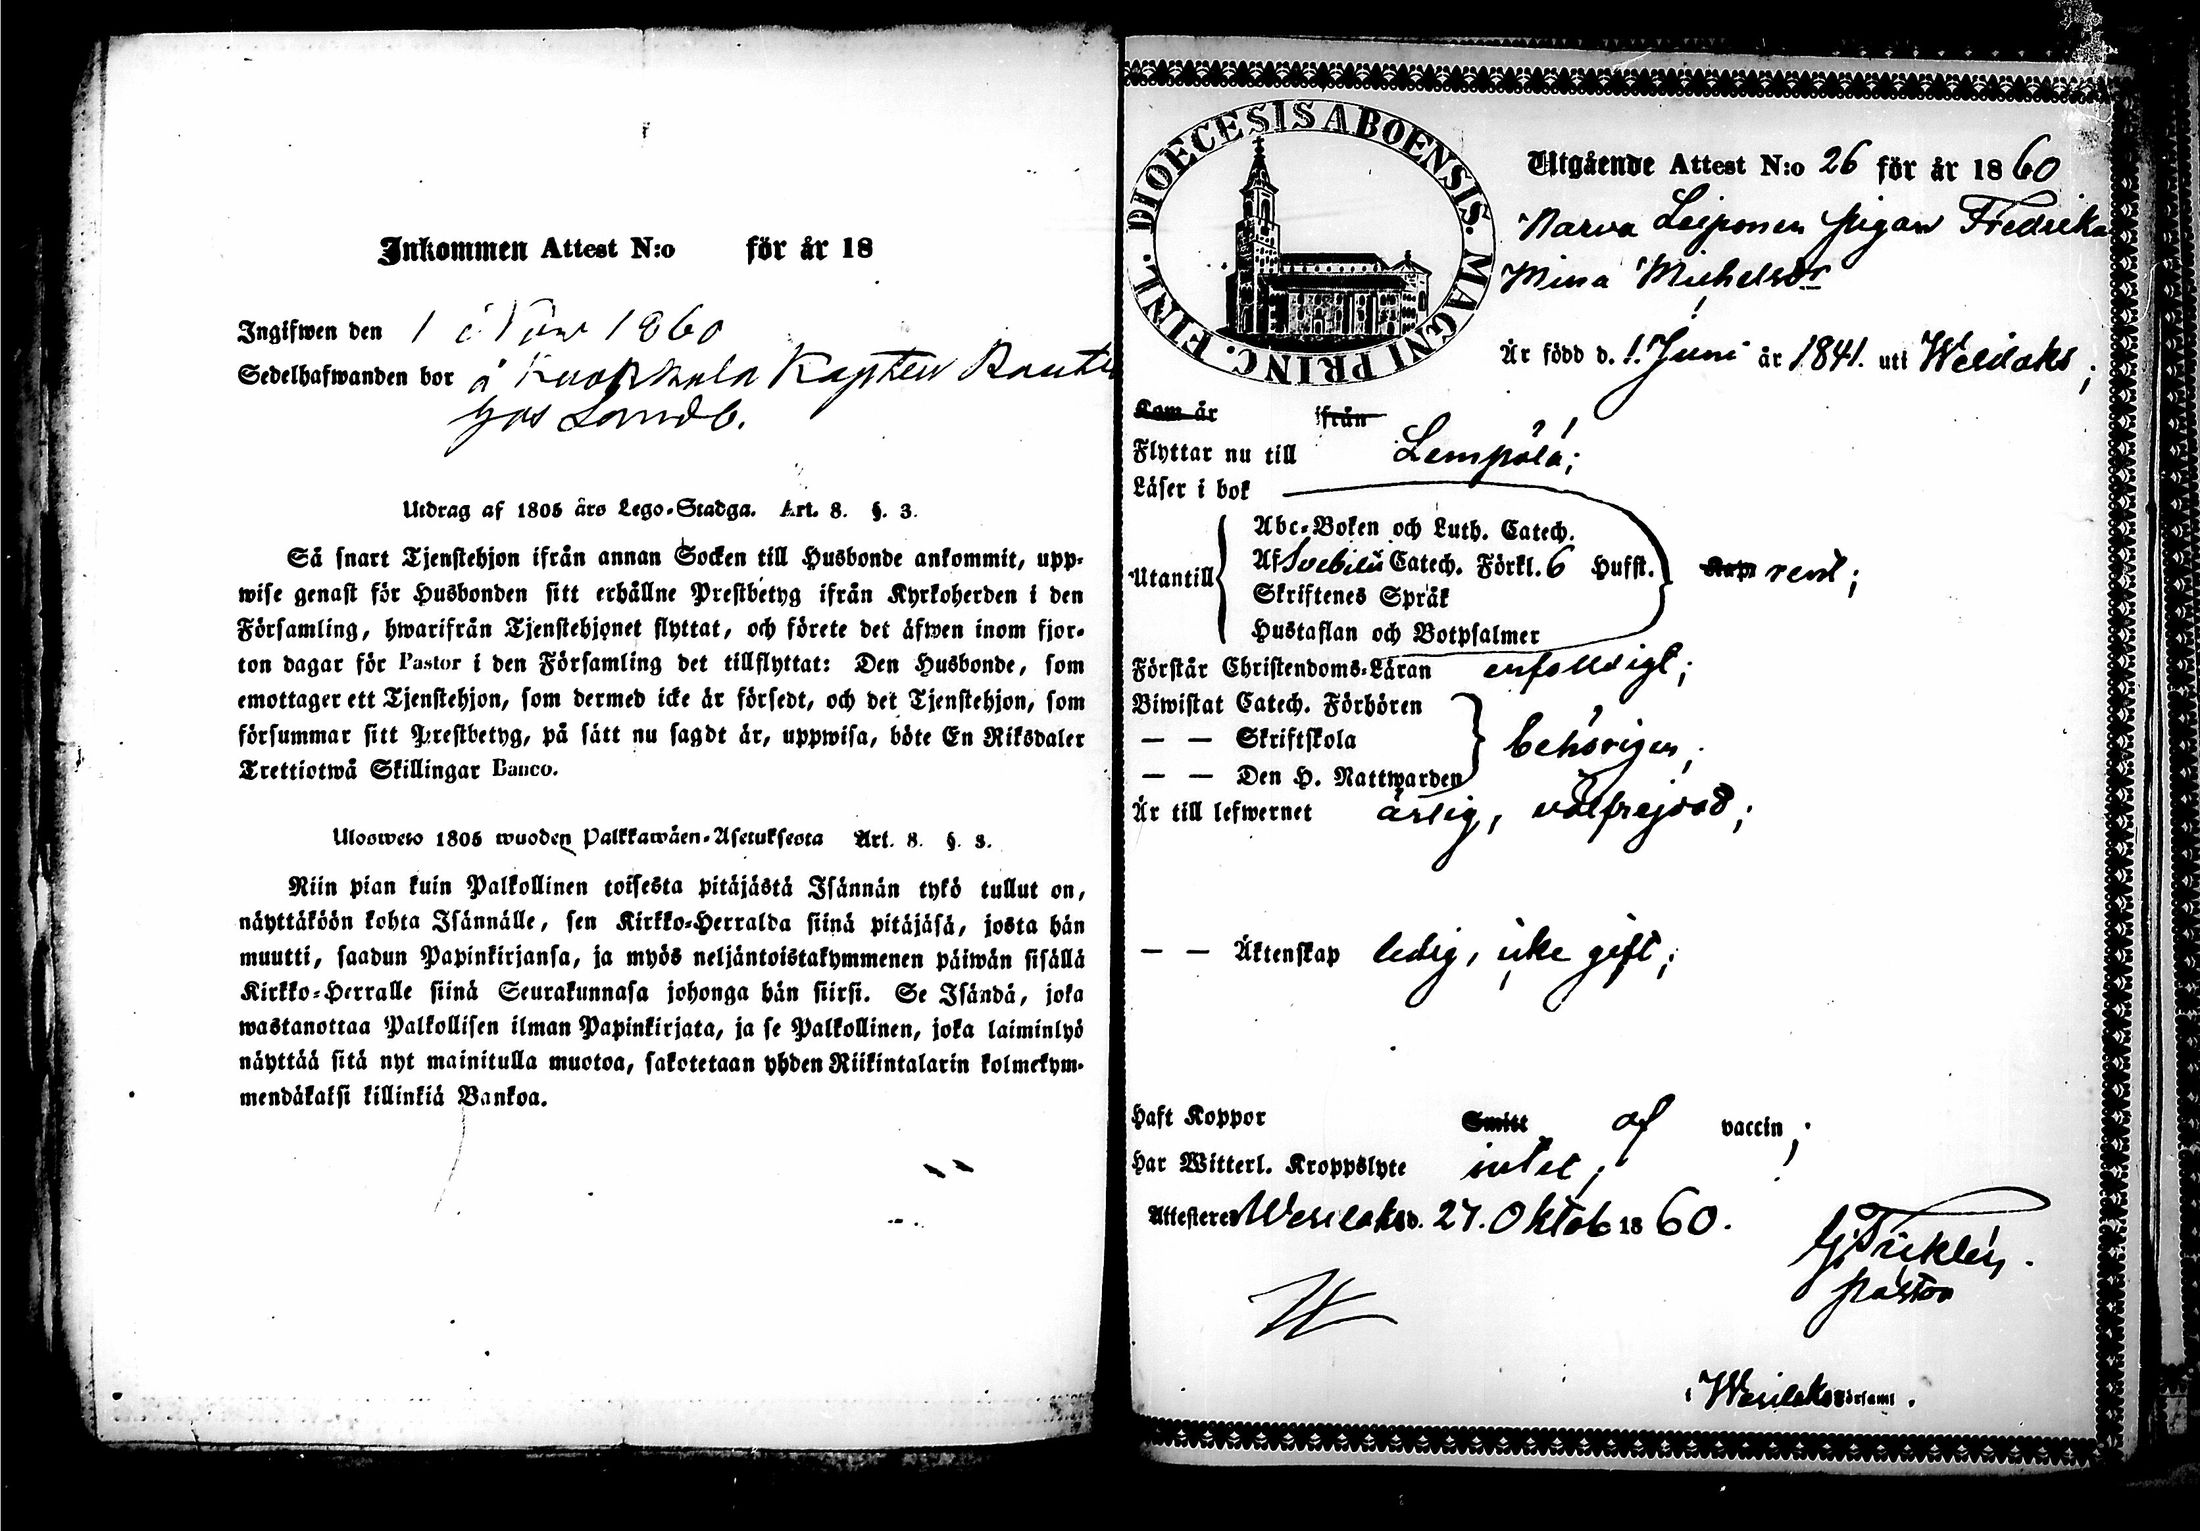 Inkommen Attest N:o för år 18
Ingifwen den 1 Nov 1860
Sedelhafwanden bor å Kuokkala Kapten
hos Landb.
Utdrag af 1805 års Lego-Stadga. Art. 8. §. 3.
Så snart Tjenstehjon ifrån annan Socken till Husbonde ankommit, upp-
wise genast för Husbonden sitt erhållne Prestbetyg ifrån Kyrkoherden i den
Församling, hwarifrån Tjenstehjonet flyttat, och förete det äfwen inom fjor-
ton dagar för Pastor i den Församling det tillflyttat: Den Husbonde, som
emottager ett Tjenstehjon, som dermed icke är försedt, och det Tjenstehjon, som
försummar sitt Prestbetyg, på sätt nu sagdt är, uppwisa, böte En Riksdaler
Trettiotwå Skillingar Banco.
Ulosweto 1805 wuoden Palkkawäen-Asetuksesta Art. 8. §. 3.
Niin pian kuin Palkollinen toisesta pitäjästä Isännän tykö tullut on,
näyttäköön kohta Isännälle, sen Kirkko-Herralda siinä pitäjäsä, josta hän
muutti, saadun Papinkirjansa, ja myös neljäntoistakymmenen päiwän sisällä
Kirkko-Herralle siinä Seurakunnasa johonga hän siirsi. Se Isändä, joka
wastanottaa Palkollisen ilman Papinkirjata, ja se Palkollinen, joka laiminlyö
näyttää sitä nyt mainitulla muotoa, sakotetaan yhden Riikintalarin kolmekym-
mendäkaksi killinkiä Bankoa.
DIOECESIS ABOENSIS. MAGNI PRINC. FINL.
Utgående Attest N:o 26 för år 1860
Narva Leiponen pigan Fredrika
Mina Michelsdr
Är född d. 1. Juni år 1841. uti Wesilaks;
Kom år ifrån
Flyttar nu till Lempälä;
Läser i bok
Abc-Boken och Luth. Catech.
Utantill Af Svebilii Catech. Förkl. 6 Hufst. rent;
Skriftenes Språk
Hustaflan och Botpsalmer
Förstår Christendoms-Läran enfaldigt;
Biwistat Catech. Förhören
— — Skriftskola behörigen,
— — Den H. Nattwarden
Är till lefwernet ärlig, välfrejdad;
— — Äktenskap ledig, icke gift;
Haft Koppor Smitt af vaccin;
Har Witterl. Kroppslyte intet;
Attesteres Wesilaks d. 27. Oktob 1860.
Pastor
i Wesilaks Församl.